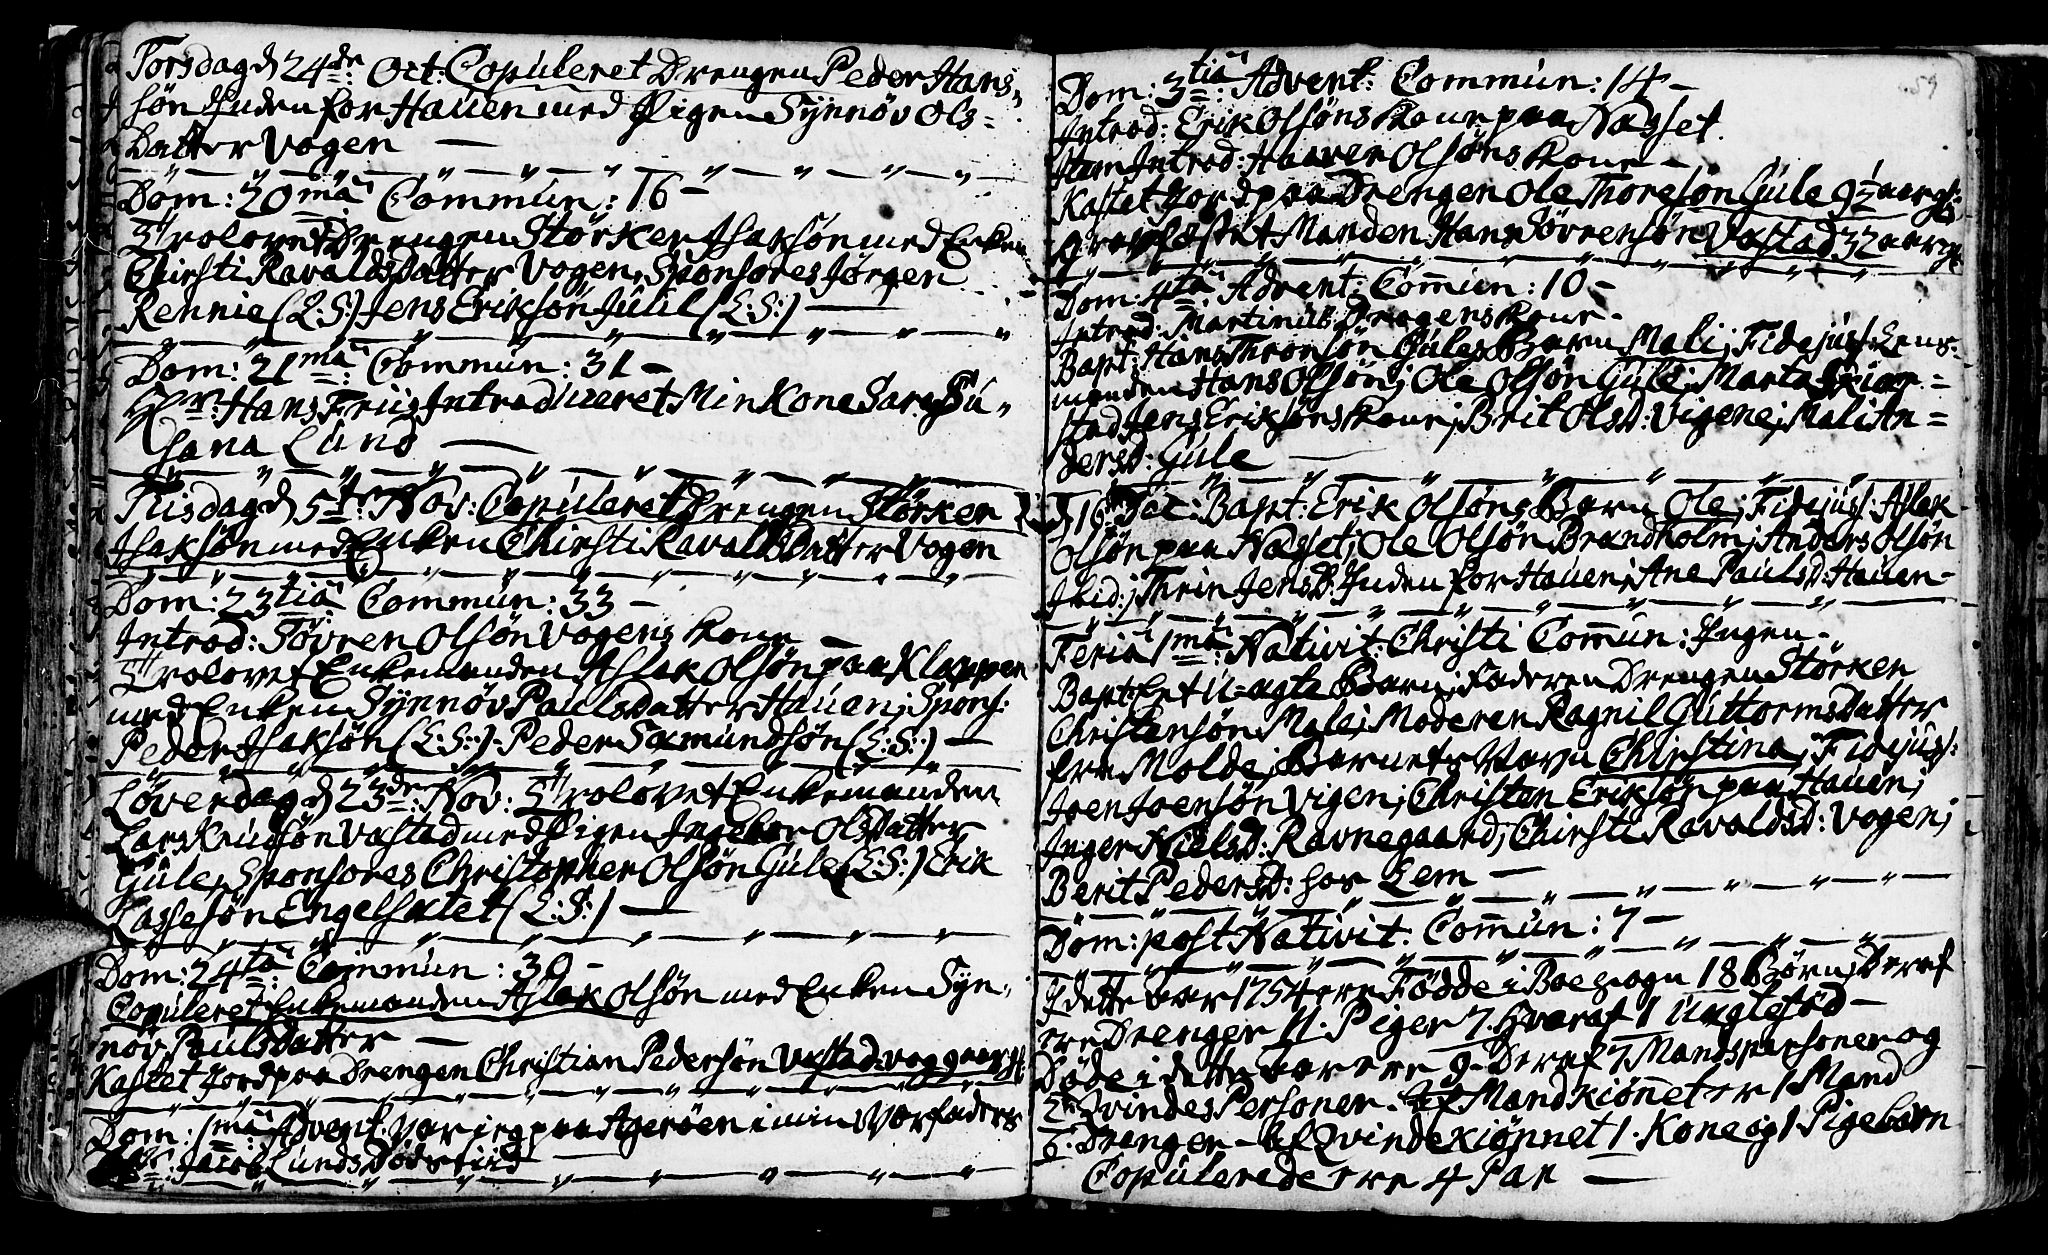 Torsdag d 24de: Oct: Copuleret Drengen Peder Hans-
søn Inden for Hauen med Pigen Synnøv Ols=
Datter Vogen —
Dom: 20ma Commun: 16 —
Trolovet Drengen Størker Isaksøn med Enken
Chirsti Ravaldsdatter Vogen, Sponsores Jørgen
Rennie (L:S:) Jens Eriksøn Julil (L:S:) —
Dom: 21ma: Commun: 31 —
Hr: Hans Friis Introduceret Min Kone Sara Su-
sana Lund —
Tiisdag d 5te: Nov: Copuleret Drengen Størker
Isaksøn med Enken Chirsti Ravaldsdatter Vogen
Dom: 23tia Commun: 33 —
Introd: Søvren Olsøn Vogens Kone —
Trolovet Enkemanden Aslak Olsøn paa Klappen
med Enken Synnøv Paulsdatter Hauen; Spons:
Peder Isaksøn (L:S:) Peder Sæmundsøn (L:S:) —
Løverdag d 23de: Nov: Trolovet Enkemanden
Lars Knudsøn Vastad med Pigen Ingebor Olsdatter
Gule, Sponsores Christopher Olsøn Gule (L:S:) Erik
Lassesøn Engelsætet (L:S:) —
Dom: 24ta Commun: 30 —
Copuleret Enkemanden Aslak Olsøn med Enken Syn-
nøv Paulsdatter —
Kastet Jord paa Drengen Christian Pedersøn Vastad
Dom: 1ma Advent. Var jeg paa Agerøen i min Vorfaders
Jacob Lunds Dødsfærd
59
Dom: 3tia Advent: Commun: 14 —
Introd: Erik Olsøns Kone paa Næsset.
Item Introd: Haaver Olsøns Kone —
Kastet Jord paa Drengen Ole Thoresøn Gule 9½ aar gl:
Manden Hans Søvrensøn Vastad 32 aar gl:
Dom: 4ta Advent: Comun: 10 —
Introd: Martinus Kone —
Bapt: Hans Thronsøn Gules Barn Mali; Fidejuss: Lens-
manden Hans Olsøn; Ole Olsøn Gule; Marta Skiar=
stad Jens Eriksøns Kone; Brit Olsd: Vigene; Mali An=
dersd: Gule —
d 16 Bapt: Erik Olsøns Barn Ole; Fidejuss: Aslak
Olsøn paa Næset; Ole Olsøn Brandholm; Anders Olsøn
Ibid; Thrin Jensd: Inden for Hauen; Ane Paulsd: Hauen —
Feria 1ma: Nativit: Christi Comun: Ingen —
Bapt: Et U-ægte Barn; Faderen Drengen Størker
Christensøn Male; Moderen Ragnil Guttormsdatter
fra Molde; Barnets Navn Chirstina; Fidejuss:
Joen Joensøn Vigen; Christen Eriksøn paa Hauen;
Inger Nielsd: Ravnegaard; Chirsti Ravaldsd: Vogen;
Berit Pedersd: hos Lem —
Dom: post Nativit: Comun: 7 —
I dette Aar 1754 ere Fødde i Boe sogn 18 Børn; Deraf
ere Drenger 11. Piger 7. Hvoraf 1 Uægte fød —
Døde i dette Aar ere 9. Deraf 7 Mandspersoner og
2 Qvindes Personer. Af Mandkiønnet er 1 Mand
6. Drenger. Af Qvindekiønnet 1. Kone og 1 Pigebarn
Copulerede ere 4 Par —